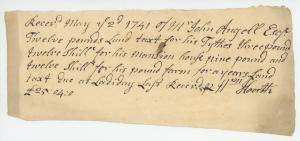 Receivd May ye 2d 1741 of Mr John Angell Esqr
Twelve pounds Land taxt for his Tythes three pound
twelve Shills for his mansion house nine pound and
twelve Shills for his pound farm for a years Land
taxt due at Ladiday Last Receivd Wm
£25:04:0